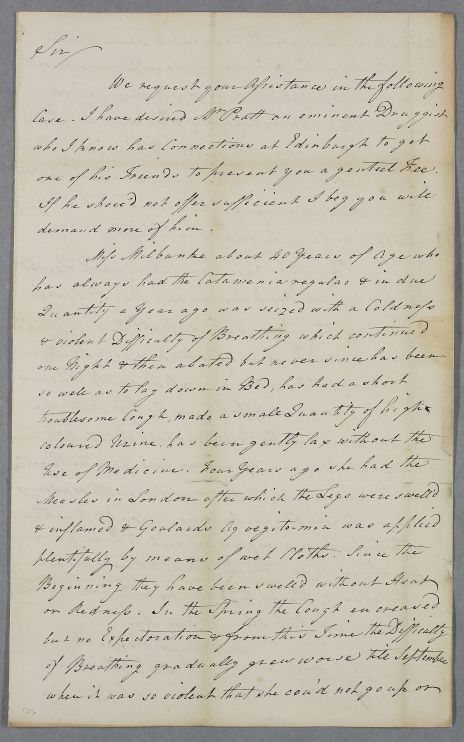 Sir
We request your Assistance in the following
Case. I have desired Mr Pratt an eminent Druggist
who I know has Connections at Edinburgh to get
one of his Friends to present you a genteel Fee.
If he should not offer sufficient I beg you will
demand more of him.
Miss Milbanke about 40 Years of Age who
has always had the Catamenia regular & in due
Quantity a Year ago was seized with a Coldness
& violent Difficulty of Breathing which continued
one Night & then abated but never since has been
so well as to lay down in Bed, has had a short
troublesome Cough, made a small Quantity of high
coloured Urine, has been gently lax without the
Use of Medicine. Four Years ago she had the
Measles in London after which the Legs were swelled
& inflamed & Goulards Aq vegito-min was applied
plentifully by means of wet Cloths. Since the
Beginning they have been swelled without Heat
or Redness. In the Spring the Cough encreased
but no Expectoration & from this Time the Difficulty
of Breathing gradually grew worse till September
when it was so violent that she cou'd not go up or